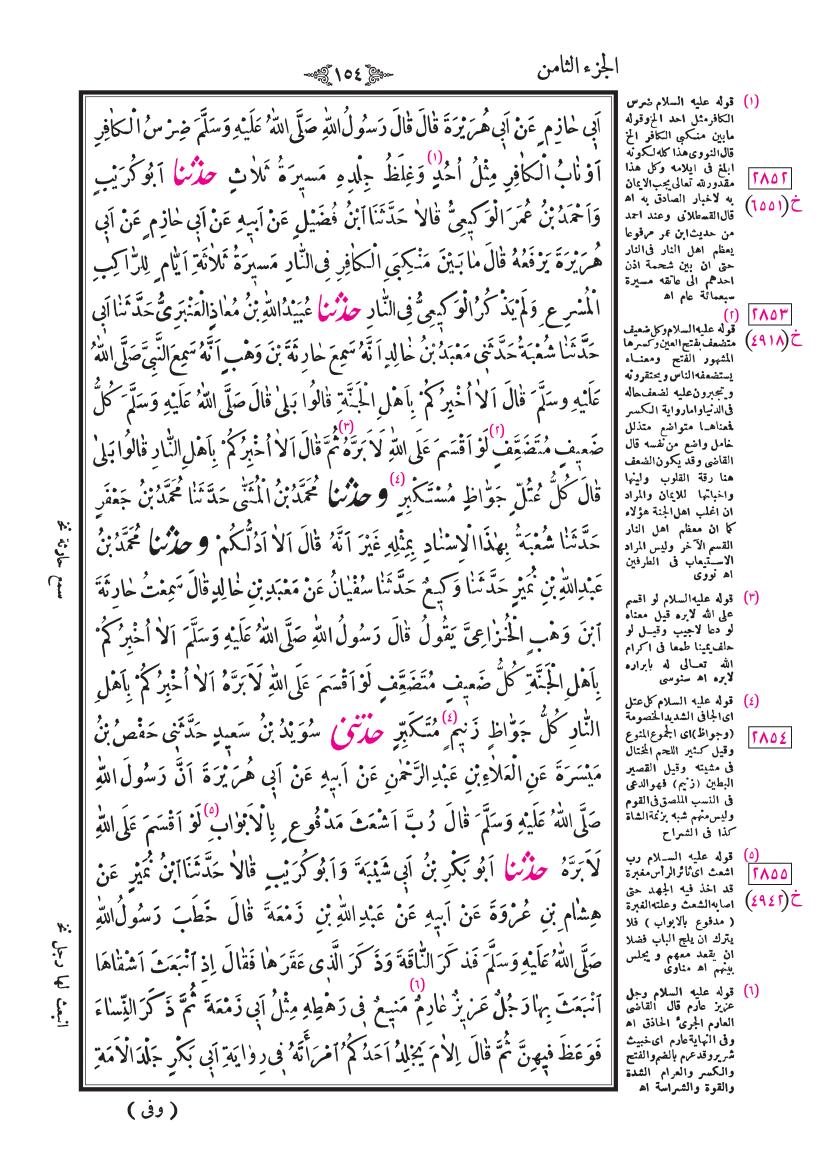 الجزء الثامن
﴿١٥٤﴾
اَبِى حَازِمٍ عَنْ اَبِى هُرَيْرَةَ قَالَ قَالَ رَسُولُ اللهِ صَلَّى اللهُ عَلَيْهِ وَسَلَّمَ ضِرْسُ الْكَافِرِ
اَوْنَابُ الْكَافِرِ مِثْلُ اُحُدٍ(١) وَغِلَظُ جِلْدِهِ مَسِيرَةُ ثَلَاثٍ حَدَّثَنَا اَبُوكُرَيْبٍ
وَاَحْمَدُ بْنُ عُمَرَ الْوَكِيعِىُّ قَالَا حَدَّثَنَا ابْنُ فُضَيْلٍ عَنْ اَبِيهِ عَنْ اَبِى حَازِمٍ عَنْ اَبِى
هُرَيْرَةَ يَرْفَعُهُ قَالَ مَا بَيْنَ مَنْكِبَىِ الْكَافِرِ فِى النَّارِ مَسِيرَةُ ثَلَاثَةِ اَيَّامٍ لِلرَّاكِبِ
الْمُسْرِعِ وَلَمْ يَذْكُرِ الْوَكِيعِىُّ فِى النَّارِ حَدَّثَنَا عُبَيْدُ اللهِ بْنُ مُعَاذٍ الْعَنْبَرِىُّ حَدَّثَنَا اَبِى
حَدَّثَنَا شُعْبَةُ حَدَّثَنِى مَعْبَدُ بْنُ خَالِدٍ اَنَّهُ سَمِعَ حَارِثَةَ بْنَ وَهْبٍ اَنَّهُ سَمِعَ النَّبِىَّ صَلَّى اللهُ
عَلَيْهِ وَسَلَّمَ قَالَ اَلَا اُخْبِرُكُمْ بِاَهْلِ الْجَنَّةِ قَالُوا بَلَى قَالَ صَلَّى اللهُ عَلَيْهِ وَسَلَّمَ كُلُّ
ضَعِيفٍ مُتَضَعَّفٍ(٢) لَوْ اَقْسَمَ عَلَى اللهِ لَاَبَرَّهُ(٣) ثُمَّ قَالَ اَلَا اُخْبِرُكُمْ بِاَهْلِ النَّارِ قَالُوا بَلَى
قَالَ كُلُّ عُتُلٍّ جَوَّاظٍ مُسْتَكْبِرٍ(٤) وحَدَّثَنَا مُحَمَّدُ بْنُ الْمُثَنَّى حَدَّثَنَا مُحَمَّدُ بْنُ جَعْفَرٍ
حَدَّثَنَا شُعْبَةُ بِهٰذَا الْاِسْنَادِ بِمِثْلِهِ غَيْرَ اَنَّهُ قَالَ اَلَا اَدُلُّكُمْ وحَدَّثَنَا مُحَمَّدُ بْنُ
عَبْدِ اللهِ بْنِ نُمَيْرٍ حَدَّثَنَا وَكِيعٌ حَدَّثَنَا سُفْيَانُ عَنْ مَعْبَدِ بْنِ خَالِدٍ قَالَ سَمِعْتُ حَارِثَةَ
ابْنَ وَهْبٍ الْخُزَاعِىَّ يَقُولُ قَالَ رَسُولُ اللهِ صَلَّى اللهُ عَلَيْهِ وَسَلَّمَ اَلَا اُخْبِرُكُمْ
بِاَهْلِ الْجَنَّةِ كُلُّ ضَعِيفٍ مُتَضَعَّفٍ لَوْ اَقْسَمَ عَلَى اللهِ لَاَبَرَّهُ اَلَا اُخْبِرُكُمْ بِاَهْلِ
النَّارِ كُلُّ جَوَّاظٍ زَنِيمٍ(٤) مُتَكَبِّرٍ حَدَّثَنِى سُوَيْدُ بْنُ سَعِيدٍ حَدَّثَنِى حَفْصُ بْنُ
مَيْسَرَةَ عَنِ الْعَلَاءِ بْنِ عَبْدِ الرَّحْمٰنِ عَنْ اَبِيهِ عَنْ اَبِى هُرَيْرَةَ اَنَّ رَسُولَ اللهِ
صَلَّى اللهُ عَلَيْهِ وَسَلَّمَ قَالَ رُبَّ اَشْعَثَ مَدْفُوعٍ بِالْاَبْوَابِ(٥) لَوْ اَقْسَمَ عَلَى اللهِ
لَاَبَرَّهُ حَدَّثَنَا اَبُو بَكْرِ بْنُ اَبِى شَيْبَةَ وَاَبُوكُرَيْبٍ قَالَا حَدَّثَنَا ابْنُ نُمَيْرٍ عَنْ
هِشَامِ بْنِ عُرْوَةَ عَنْ اَبِيهِ عَنْ عَبْدِ اللهِ بْنِ زَمْعَةَ قَالَ خَطَبَ رَسُولُ اللهِ
صَلَّى اللهُ عَلَيْهِ وَسَلَّمَ فَذَكَرَ النَّاقَةَ وَذَكَرَ الَّذِى عَقَرَهَا فَقَالَ اِذِ انْبَعَثَ اَشْقَاهَا
انْبَعَثَ بِهَا رَجُلٌ عَزِيزٌ عَارِمٌ(٦) مَنِيعٌ فِى رَهْطِهِ مِثْلُ اَبِى زَمْعَةَ ثُمَّ ذَكَرَ النِّسَاءَ
فَوَعَظَ فِيهِنَّ ثُمَّ قَالَ اِلَامَ يَجْلِدُ اَحَدُكُمُ امْرَأَتَهُ فِى رِوَايَةِ اَبِى بَكْرٍ جَلْدَ الْاَمَةِ
( وفى )
(١) قوله عليه السلام ضرس
الكافر مثل احد الخ وقوله
ما بين منكبى الكافر الخ
قال النووى هذا كله لكونه
ابلغ فى ايلامه وكل هذا
مقدور لله تعالى يجب الايمان
به لاخبار الصادق به اه
قال القسطلانى وعند احمد
من حديث ابن عمر مرفوعا
يعظم اهل النار فى النار
حتى ان بين شحمة اذن
احدهم الى عاتقه مسيرة
سبعمائة عام اه
(٢)
قوله عليه السلام وكل ضعيف
متضعف بفتح العين وكسرها
المشهور الفتح ومعناه
يستضعفه الناس ويحتقرونه
ويتجبرون عليه لضعف حاله
فى الدنيا واما رواية الكسر
فمعناها متواضع متذلل
خامل واضع من نفسه قال
القاضى وقد يكون الضعف
هنا رقة القلوب ولينها
واخباتها للايمان والمراد
ان اغلب اهل الجنة هؤلاء
كما ان معظم اهل النار
القسم الآخر وليس المراد
الاستيعاب فى الطرفين
اه نووى
(٣) قوله عليه السلام لو اقسم
على الله لابره قيل معناه
لو دعا لاجيب وقيل لو
حلف يمينا طمعا فى اكرام
الله تعالى له بابراره
لابره اه سنوسى
(٤) قوله عليه السلام كل عتل
اى الجافى الشديد الخصومة
(وجواظ) اى الجموع المنوع
وقيل كثير اللحم المختال
فى مشيته وقيل القصير
البطين (زنيم) فهو الدعى
فى النسب الملصق فى القوم
وليس منهم شبه بزنمة الشاة
كذا فى الشراح
(٥) قوله عليه السلام رب
اشعث اى ثائر الرأس مغبرة
قد اخذ فيه الجهد حتى
اصابه الشعث وعلته الغبرة
( مدفوع بالابواب ) فلا
يترك ان يلج الباب فضلا
ان يقعد معهم ويجلس
بينهم اه مناوى
(٦) قوله عليه السلام رجل
عزيز عارم قال القاضى
العارم الجرئ الحاذق اه
وفى النهاية عارم اى خبيث
شرير وقد عرم بالضم والفتح
والكسر والعرام الشدة
والقوة والشراسة اه
٢٨٥٢
خ(٦٥٥١)
٢٨٥٣
خ(٤٩١٨)
٢٨٥٤
٢٨٥٥
خ(٤٩٤٢)
سمع حارثة نخ
انبعث لها رجل نخ